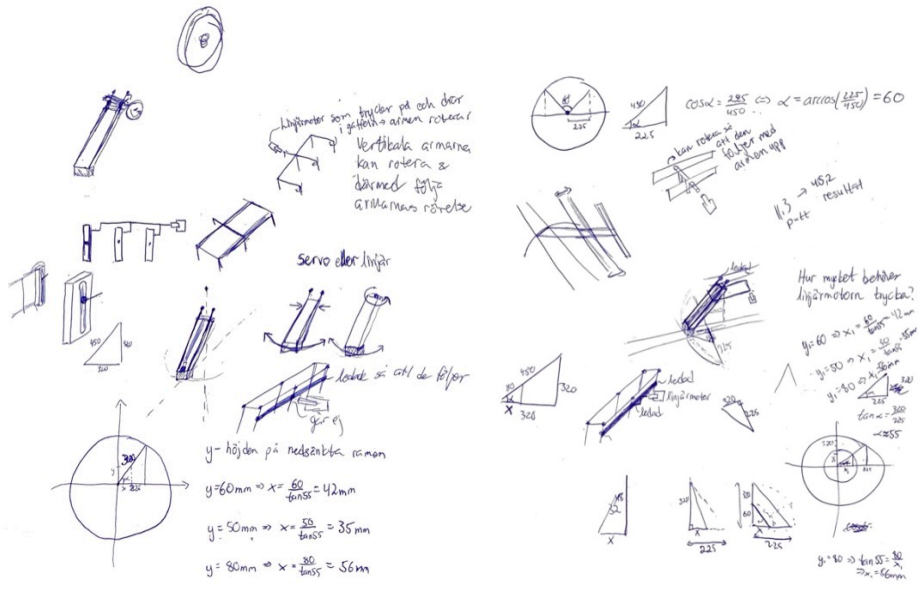 Linjärmotor som trycker på och drar
i gaffeln → armen roterar
Vertikala armarna
kan rotera &
därmed följa
armarnas rörelse
servo eller linjär
450
320
ledade så att de följer
går ej
y- höjden på nedsänkta ramen
y=60mm ⇒ x = 60/tan55 = 42mm
y=50mm ⇒ x = 50/tan55 = 35mm
y=80mm ⇒ x = 80/tan55 = 56mm
225
450
225
cosα = 225/450 ⇔ α = arccos(225/450) = 60
kan rotera så
att den
följer med
armen upp
11.3 → 45,2
resultat
ledad
225
Hur mycket behöver
linjärmotorn trycka?
y₁=60 ⇒ x₁ = 60/tan55 = 42mm
y₁=50 ⇒ x₁ = 50/tan55 = 35mm
y₁=80 ⇒ x₁ 56mm
320
225
tanα = 320/225
α=55
450
80
320
x
320
ledad
linjärmotor
ledad
320
225
x
320
x
225
80
60
x
225
y₁=80 ⇒ tan55 = 80/x₁
⇒ x₁ = 56mm